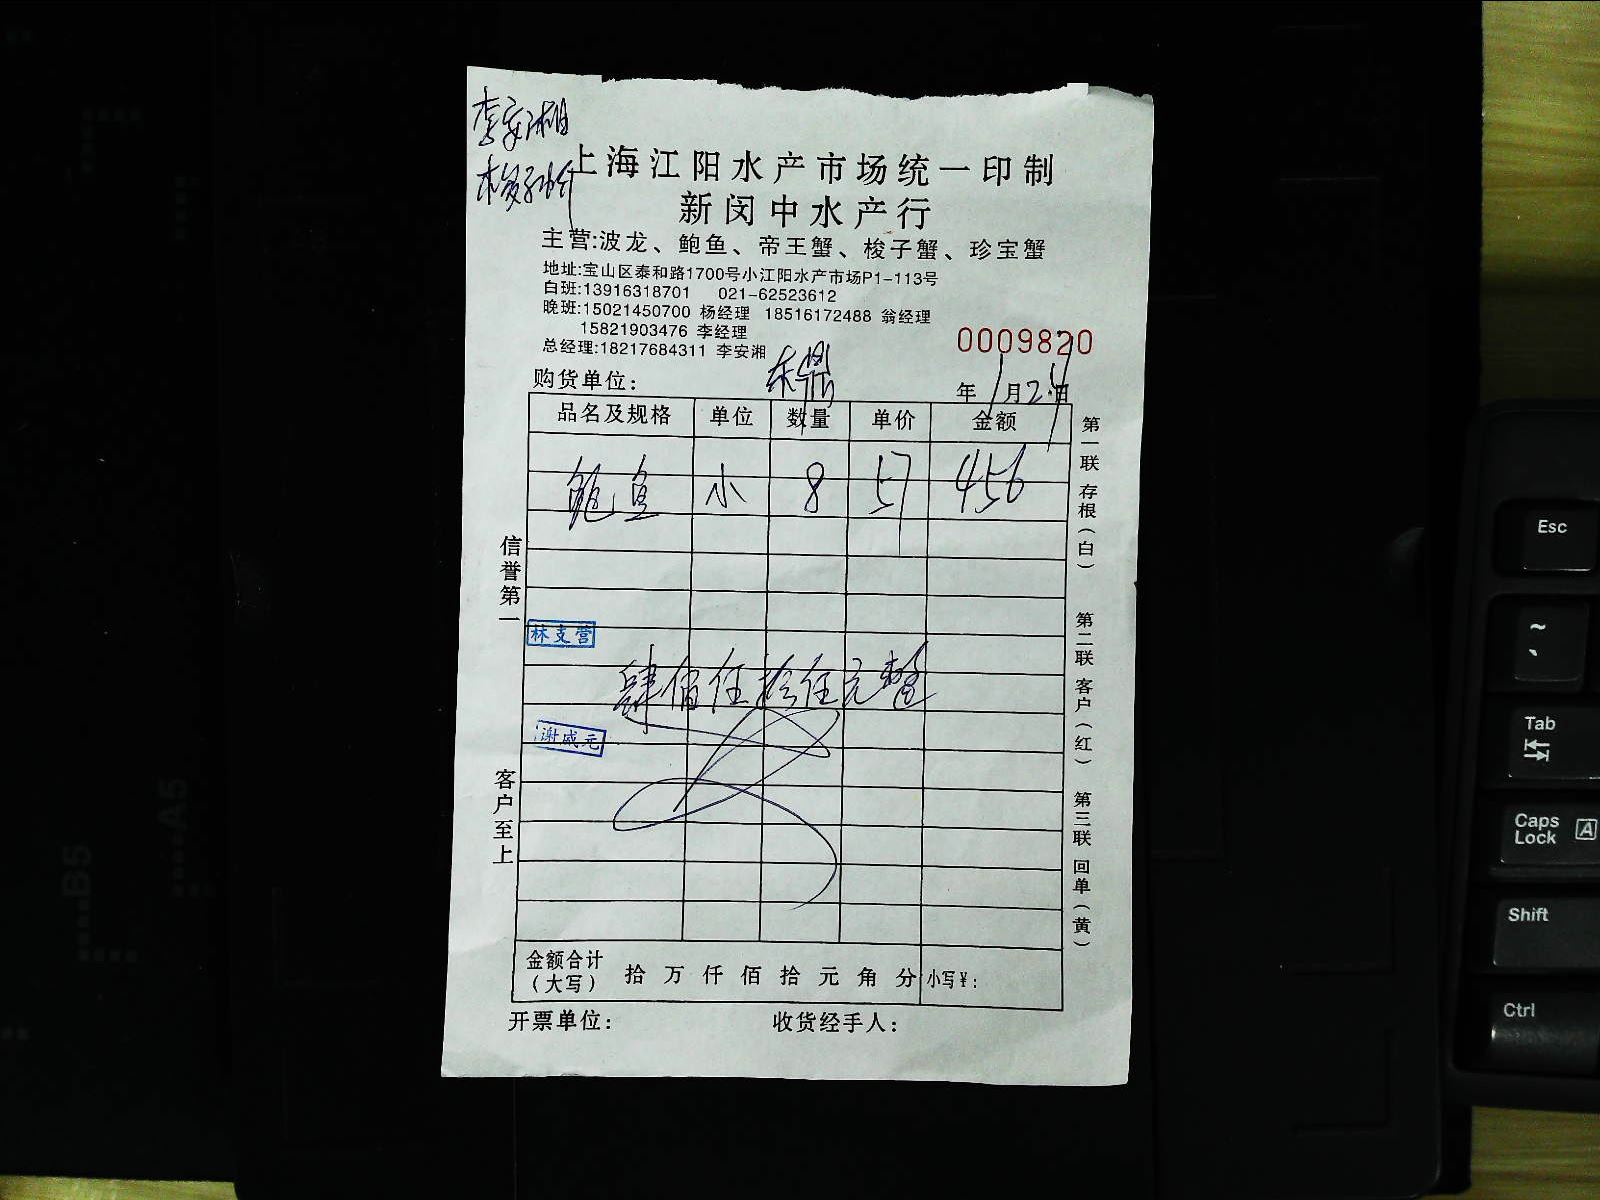 李安湘
上海江阳水产市场统一印制
新闵中水产行
主营:波龙、鲍鱼、帝王蟹、梭子蟹、珍宝蟹
地址:宝山区泰和路1700号小江阳水产市场P1-113号
白班:13916318701 021-62523612
晚班:15021450700 杨经理 18516172488 翁经理
15821903476 李经理
总经理:18217684311 李安湘
0009820
购货单位:
年 1月2 日
品名及规格 单位 数量 单价 金额
鲍鱼 小 8 57 456
肆佰伍拾伍元整
林支营
谢威元
金额合计(大写) 拾万仟佰拾元角分 小写¥:
开票单位: 收货经手人:
信誉第一
客户至上
第一联 存根(白)
第二联 客户(红)
第三联 回单(黄)
B5
A5
Esc
~
Tab
Caps Lock A
Shift
Ctrl